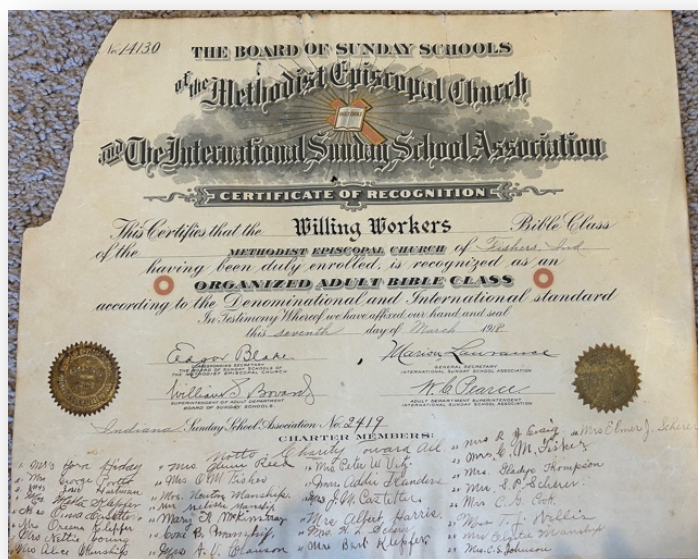 No. 14130
THE BOARD OF SUNDAY SCHOOLS
of the Methodist Episcopal Church
HOLY BIBLE
AND The International Sunday School Association
CERTIFICATE OF RECOGNITION
This Certifies that the Willing Workers Bible Class
of the METHODIST EPISCOPAL CHURCH of Fishers, Ind
having been duly enrolled, is recognized as an
ORGANIZED ADULT BIBLE CLASS
according to the Denominational and International standard
In Testimony Whereof we have affixed our hand and seal
this seventh day of March 1918
Edgar Blake
CORRESPONDING SECRETARY
THE BOARD OF SUNDAY SCHOOLS OF
THE METHODIST EPISCOPAL CHURCH
Marion Lawrance
GENERAL SECRETARY
INTERNATIONAL SUNDAY SCHOOL ASSOCIATION
William S. Bovard
SUPERINTENDENT OF ADULT DEPARTMENT
BOARD OF SUNDAY SCHOOLS.
W. C. Pearce
ADULT DEPARTMENT SUPERINTENDENT
INTERNATIONAL SUNDAY SCHOOL ASSOCIATION
Indiana Sunday School Association No. 2419
CHARTER MEMBERS:
Motto: Charity toward all.
Mrs
Mrs George
Mrs Hartman
Mrs Klepper
Mrs
Mrs Klepfer
Mrs Nettie Young
Mrs Alice Manship
Mrs. Glenn Reed
Mrs O. M. Fisher
Mrs. Newton Manship.
Mrs Manship
Mary
Manship,
Mrs A. V.
Mrs Peter W.
Mrs Addie Flanders
Mrs J. W. Castetter
Mrs Albert Harris.
Mrs.
Mrs Bert Klepfer
Mrs R J Craig
Mrs. C. M. Fisher
Mrs. Gladys Thompson
Mrs. E. P. Scherer
Mrs C. G. Cook.
Mrs T. J.
Mrs Manship
Mrs. C. S. Johnson
Mrs Elmer J. Scherer